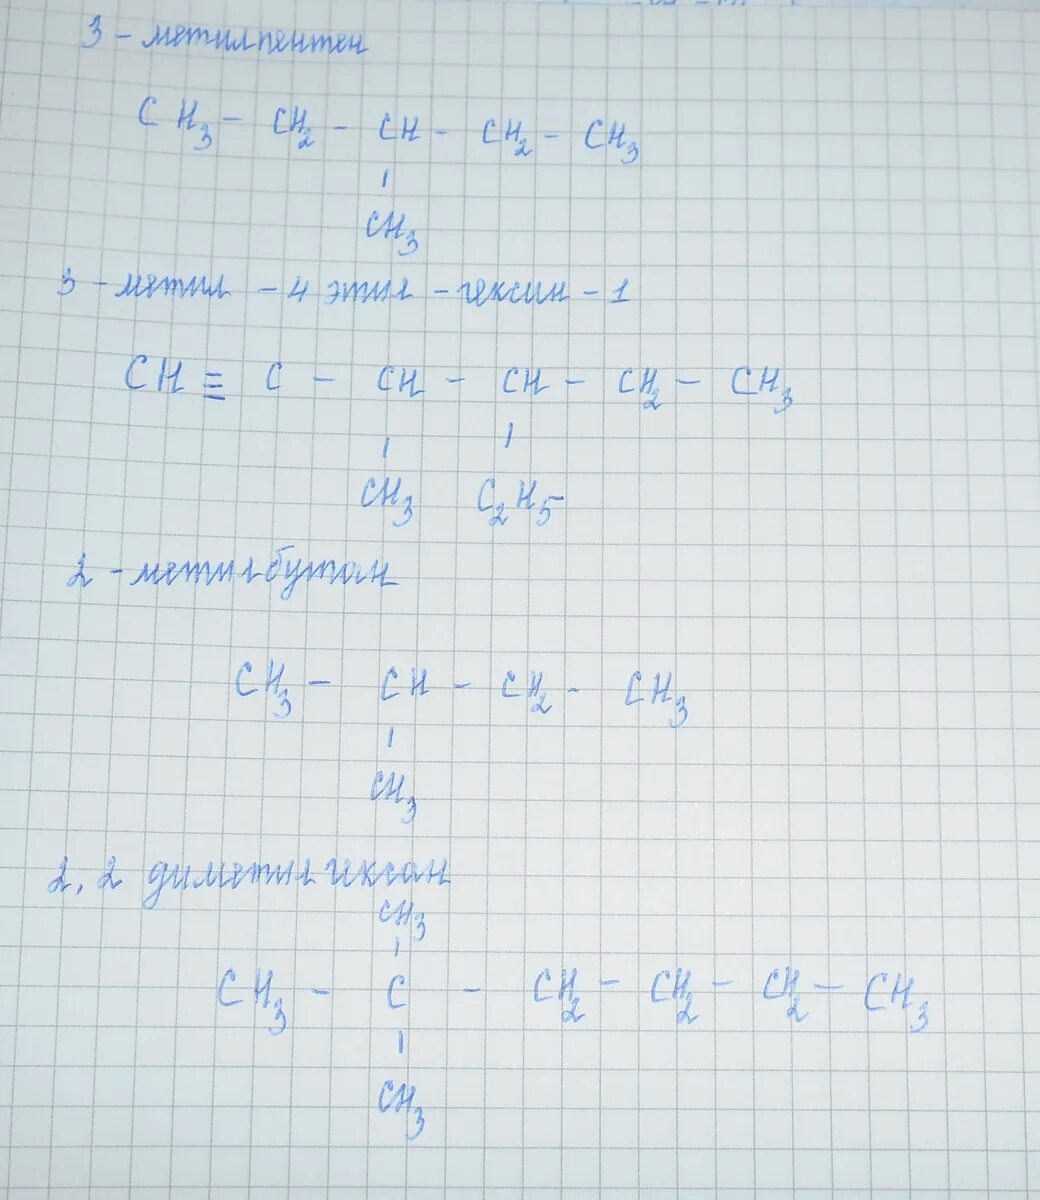 3 - метилпентен
CH₃ - CH₂ - CH - CH₂ - CH₃
CH₃
3 - метил - 4 этил - гексин - 1
CH ≡ C - CH - CH - CH₂ - CH₃
CH₃ C₂H₅
2 - метилбутан
CH₃ - CH - CH₂ - CH₃
CH₃
2, 2 диметилгексан
CH₃
CH₃ - C - CH₂ - CH₂ - CH₂ - CH₃
CH₃